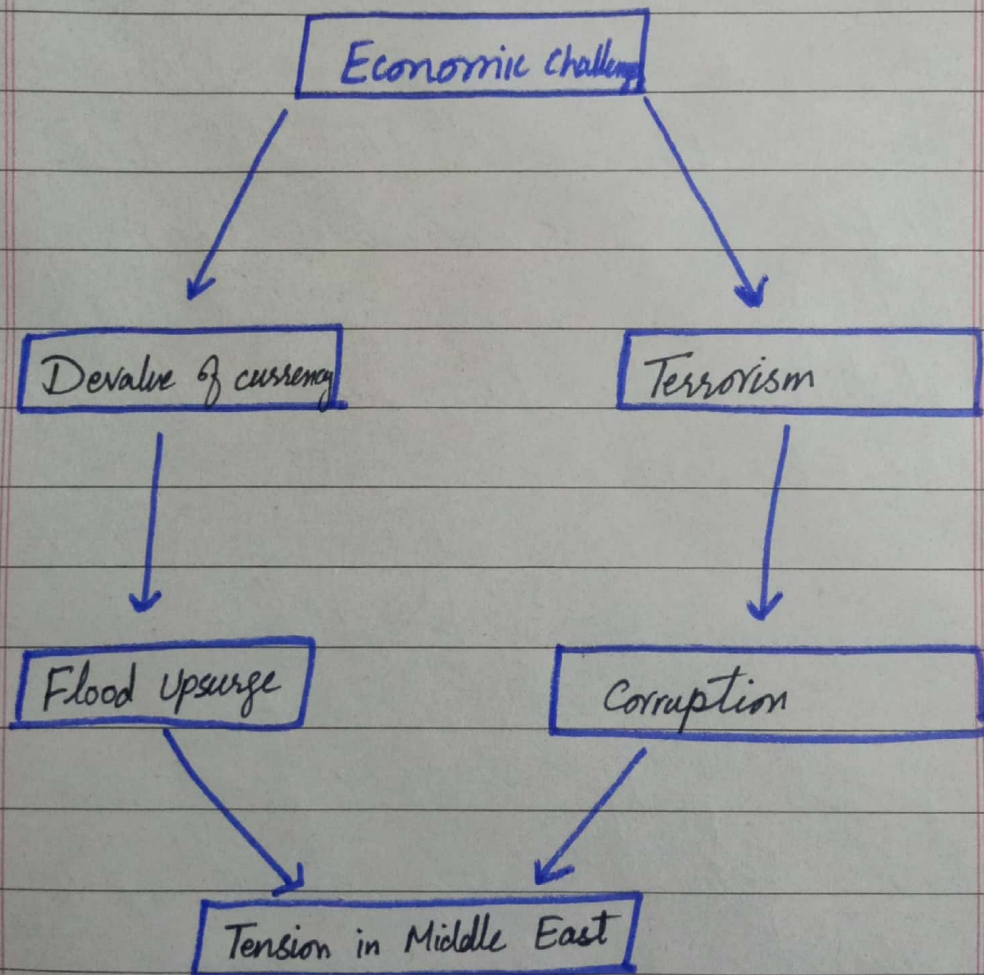 Economic Challenge
Devalue of currency
Terrorism
Flood upsurge
Corruption
Tension in Middle East